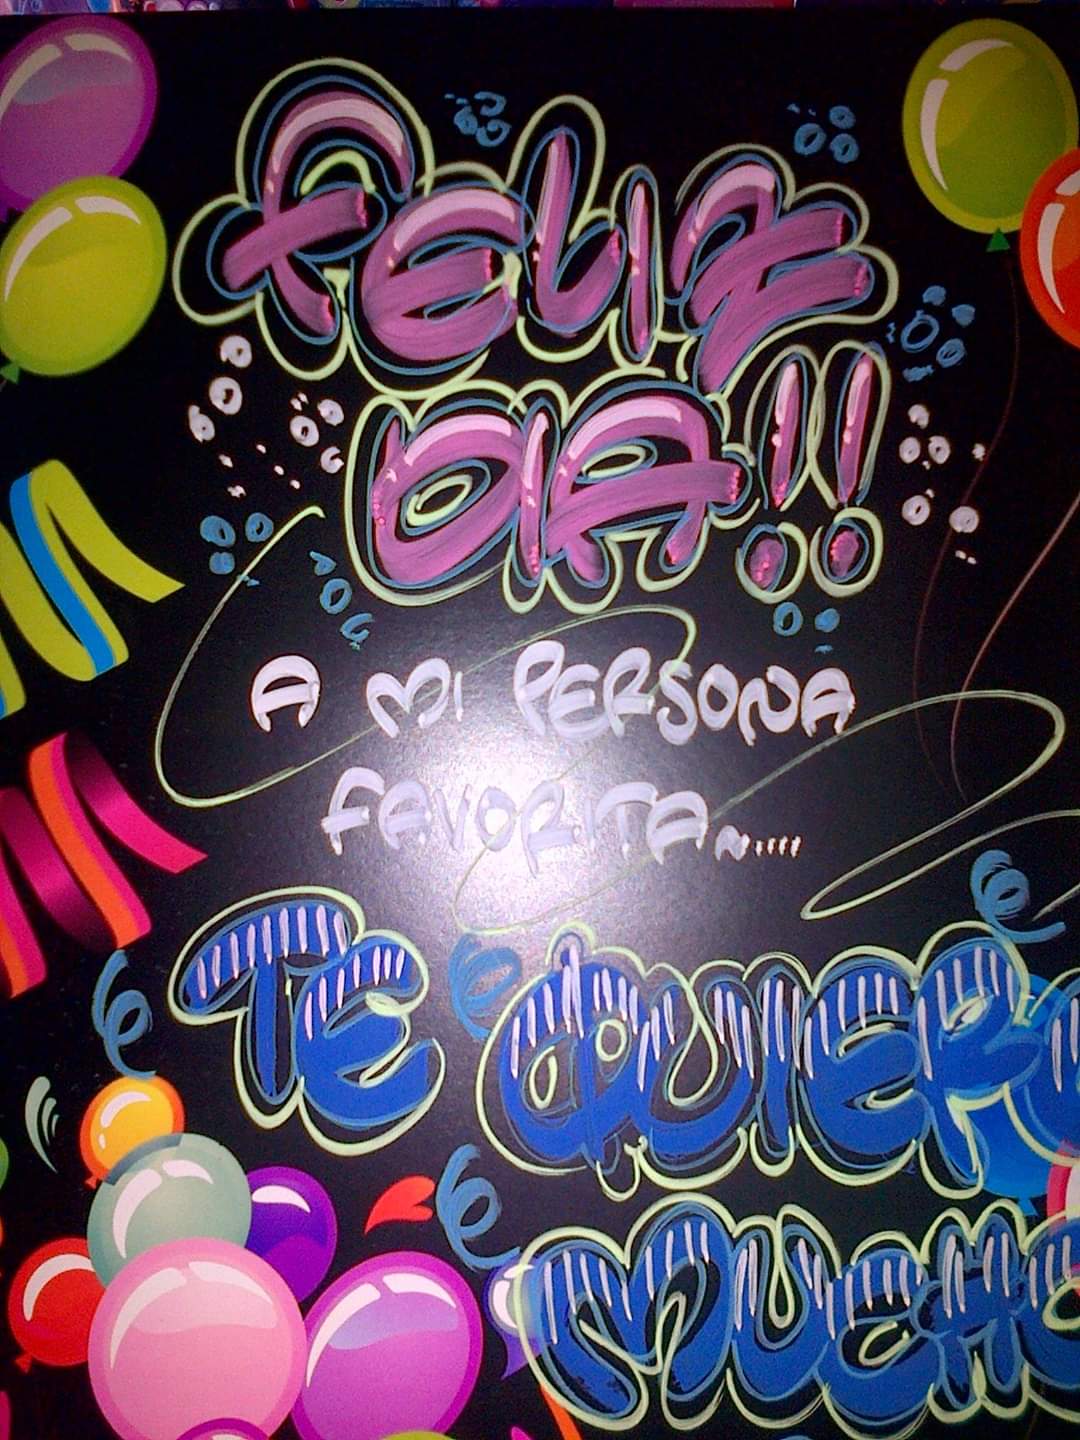 FELIZ
DIA!!
A MI PERSONA
FAVORITA~....
TE QUIERO
MUCHO